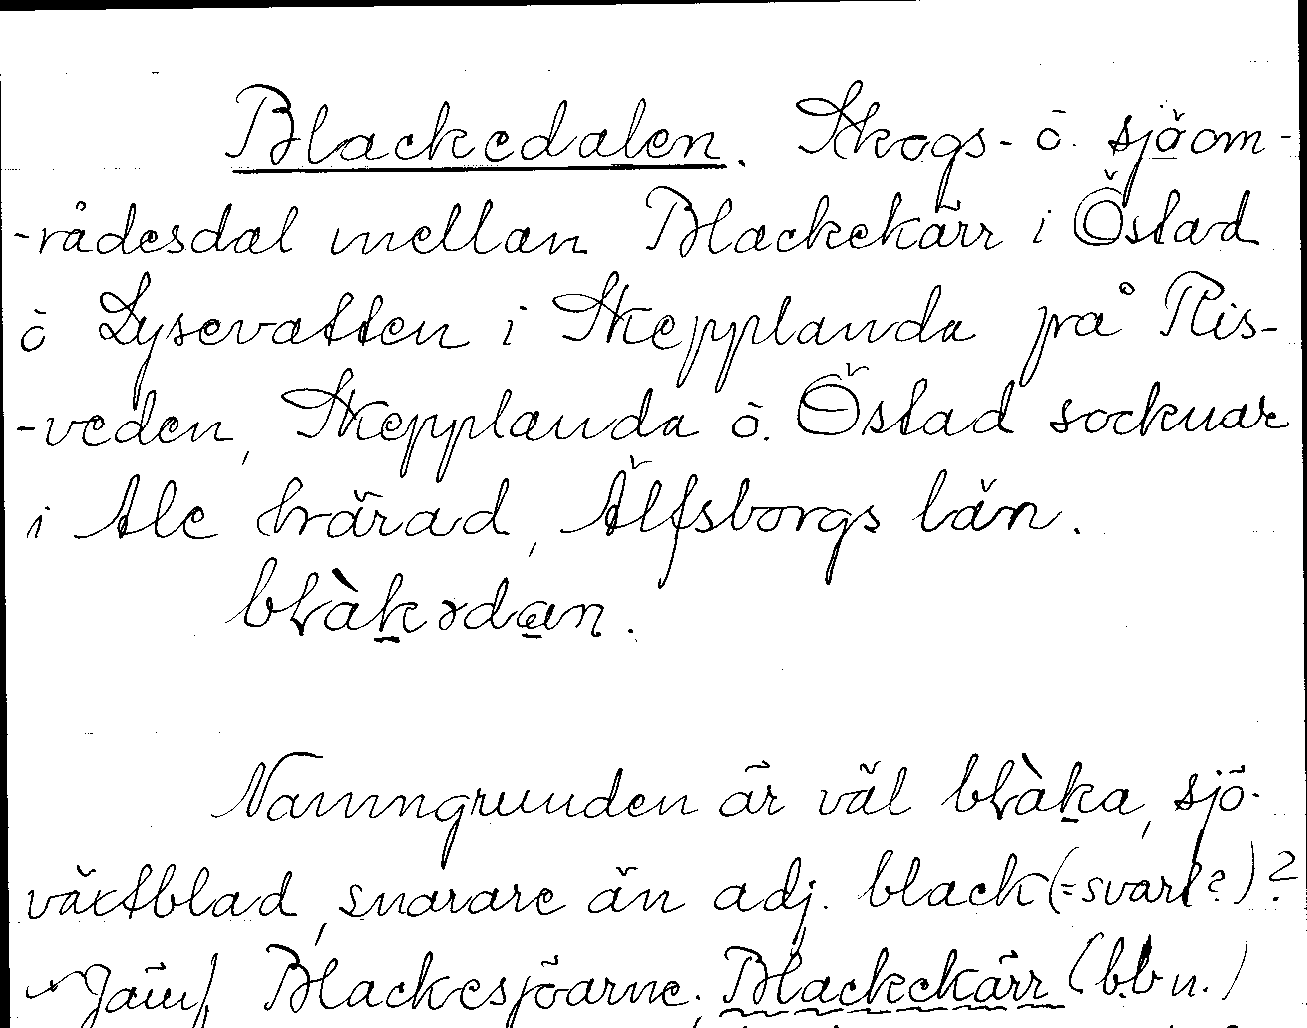 Blackedalen. Skogs- ö. sjöom-
-rådesdal mellan Blackekärr i Östad
ö Lysevatten i Skepplanda på Ris-
-veden, Skepplanda ö. Östad socknar
i Ale härad, Älfsborgs län.
blàkədan.
Namngrunden är väl blàka, sjö-
växtblad, snarare än adj. black (= svart?)?
Jämf. Blackesjöarne. Blackekärr (b.b n.)